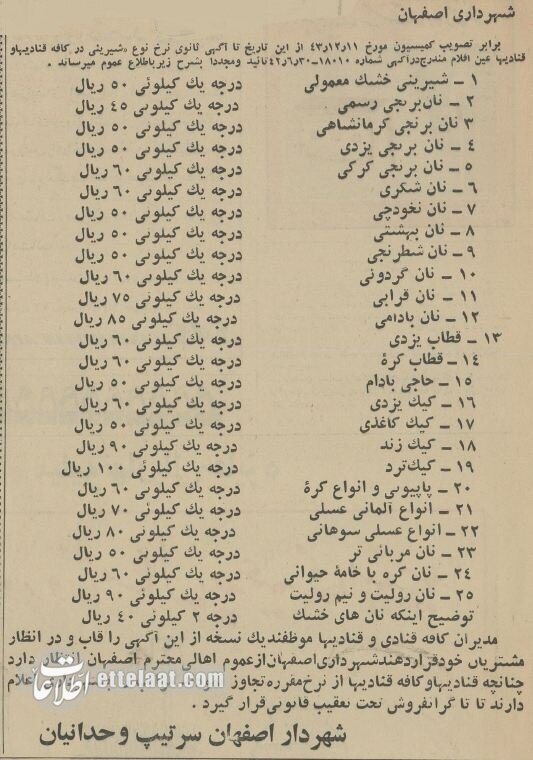 شهرداری اصفهان
برابر تصویب کمیسیون مورخ ۴۳٫۱۲٫۱۱ از این تاریخ تا آگهی ثانوی نرخ نوع شیرینی در کافه قنادیهاو
قنادیها عین اقلام مندرج درآگهی شماره ۱۸۰۱۰-۴۲٫۶٫۳۰ تائید و مجددا بشرح زیر باطلاع عموم میرساند .
۱ - شیرینی خشک معمولی درجه یک کیلوئی ۵۰ ریال
۲ - نان برنجی رسمی درجه یک کیلوئی ۴۵ ریال
۳ نان برنجی کرمانشاهی درجه یک کیلوئی ۵۰ ریال
۴ - نان برنجی یزدی درجه یک کیلوئی ۵۰ ریال
۵ - نان برنجی کرکی درجه یک کیلوئی ۶۰ ریال
۶ - نان شکری درجه یک کیلوئی ۶۰ ریال
۷ - نان نخودچی درجه یک کیلوئی ۵۰ ریال
۸ - نان بهشتی درجه یک کیلوئی ۵۰ ریال
۹ - نان شطرنجی درجه یک کیلوئی ۵۰ ریال
۱۰ - نان گردوئی درجه یک کیلوئی ۶۰ ریال
۱۱ - نان قرابی درجه یک کیلوئی ۷۵ ریال
۱۲ - نان بادامی درجه یک کیلوئی ۸۵ ریال
۱۳ - قطاب یزدی درجه یک کیلوئی ۶۰ ریال
۱۴ - قطاب کرۀ درجه یک کیلوئی ۶۰ ریال
۱۵ - حاجی بادام درجه یک کیلوئی ۵۰ ریال
۱۶ - کیک یزدی درجه یک کیلوئی ۶۰ ریال
۱۷ - کیک کاغذی درجه یک کیلوئی ۵۰ ریال
۱۸ - کیک زند درجه یک کیلوئی ۹۰ ریال
۱۹ - کیک ترد درجه یک کیلوئی ۱۰۰ ریال
۲۰ - پاپیونی و انواع کرۀ درجه یک کیلوئی ۶۰ ریال
۲۱ - انواع آلمانی عسلی درجه یک کیلوئی ۷۰ ریال
۲۲ - انواع عسلی سوهانی درجه یک کیلوئی ۸۰ ریال
۲۳ - نان مربائی تر درجه یک کیلوئی ۵۰ ریال
۲۴ - نان کره با خامۀ حیوانی درجه یک کیلوئی ۶۰ ریال
۲۵ - نان رولیت و نیم رولیت درجه یک کیلوئی ۹۰ ریال
توضیح اینکه نان های خشک درجه ۲ کیلوئی ۴۰ ریال
مدیران کافه قنادی و قنادیها موظفندیک نسخه از این آگهی را قاب و در انظار
مشتریان خودقراردهندشهرداری اصفهان ازعموم اهالی محترم اصفهان انتظار دارد
چنانچه قنادیهاوکافه قنادیها از نرخ مقرره تجاوز اعلام
دارند تا تا گرانفروش تحت تعقیب قانونی قرار گیرد .
شهردار اصفهان سرتیپ وحدانیان
اطلاعات
ettelaat.com